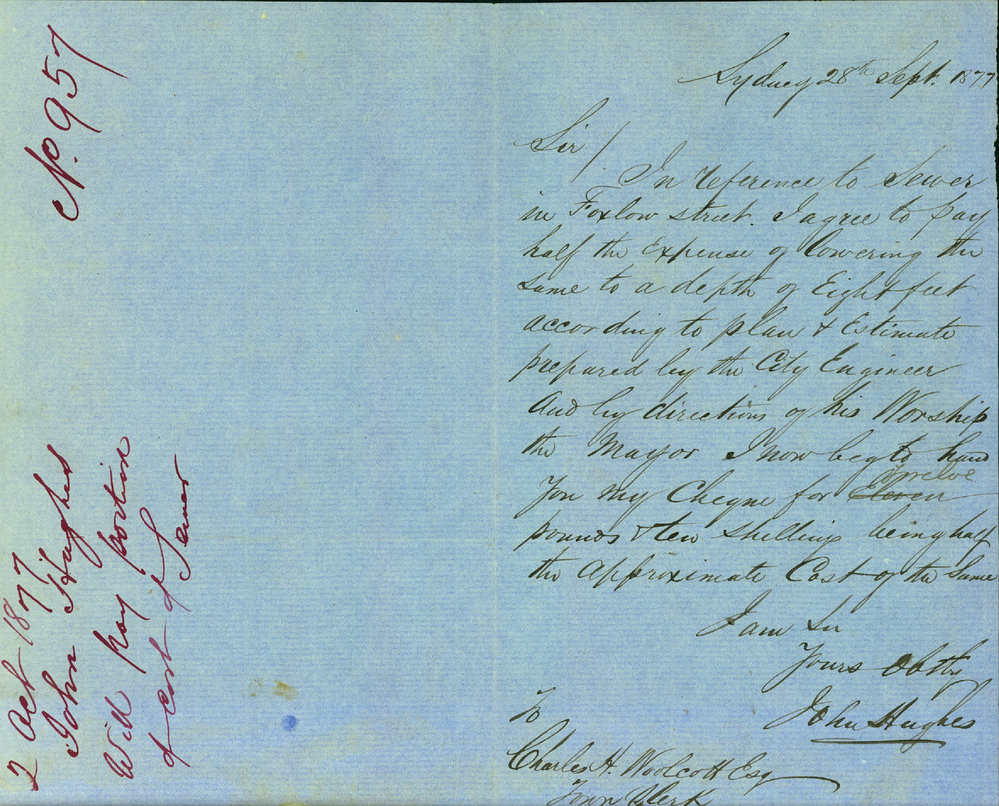 No. 957
2 Oct 1877
John Hughes
Will pay portion
of cost of Sewer
Sydney 28th Sept. 1877
Sir/
In reference to Sewer
in Foxlow street. I agree to pay
half the Expense of lowering the
same to a depth of Eight feet
according to plan & Estimate
prepared by the City Engineer
And by directions of his Worship
the Mayor I now beg to hand
twelve
You my Cheque for Eleven
pounds & ten Shillings being half
the Approximate Cost of the Same
I am Sir
Yours Obtly
John Hughes
To
Charles H. Woolcott Esq
Town Clerk